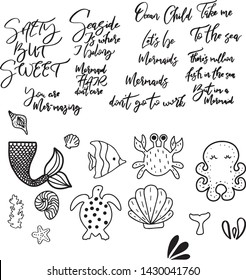 SALTY
BUT
SWEET
You are
Mer-mazing
Seaside
Is where
I belong
Mermaid
HAIR
don't care
Ocean Child
Let's be
Mermaids
Mermaids
don't go to work
Take me
To the sea
There's million
fish in the sea
But i'm a
Mermaid
shutterstock.com · 1430041760